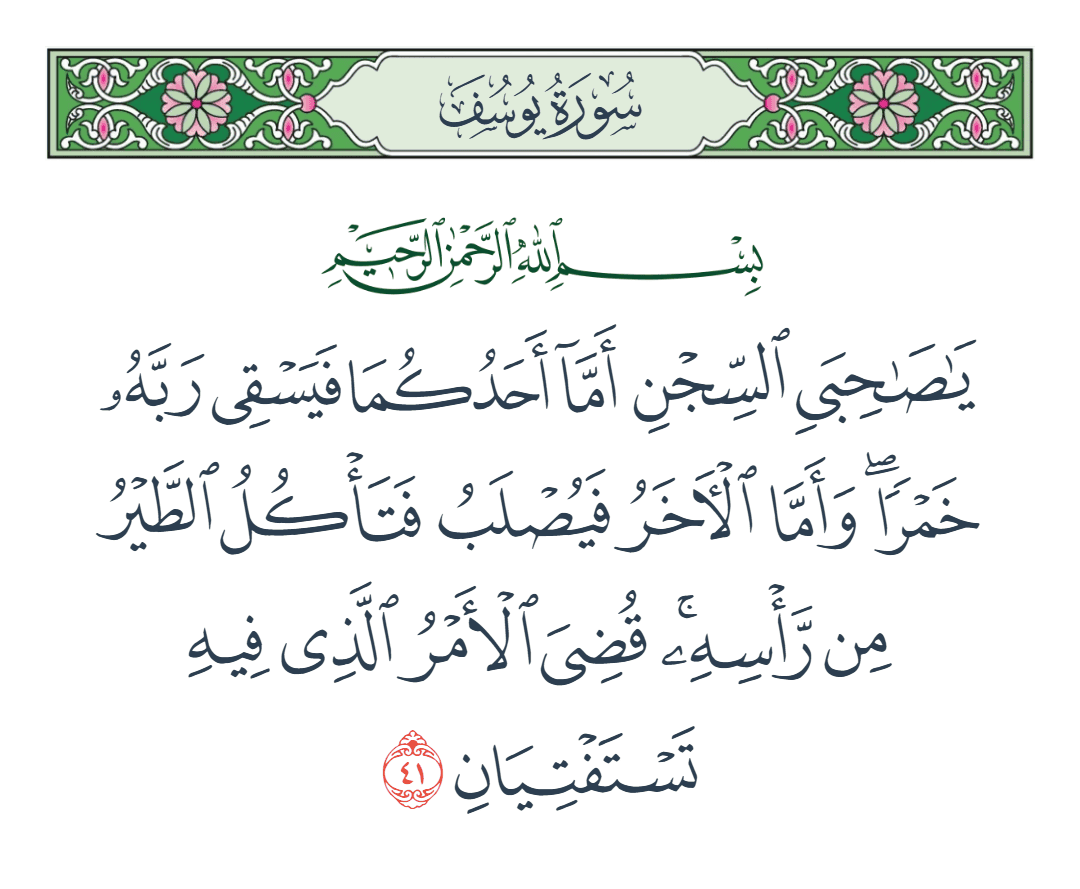 سُورَةُ يُوسُفَ
بِسْمِ ٱللَّهِ ٱلرَّحْمَٰنِ ٱلرَّحِيمِ
يَٰصَٰحِبَىِ ٱلسِّجْنِ أَمَّآ أَحَدُكُمَا فَيَسْقِى رَبَّهُۥ
خَمْرًا ۖ وَأَمَّا ٱلْـَٔاخَرُ فَيُصْلَبُ فَتَأْكُلُ ٱلطَّيْرُ
مِن رَّأْسِهِۦ ۚ قُضِىَ ٱلْأَمْرُ ٱلَّذِى فِيهِ
تَسْتَفْتِيَانِ ٤١